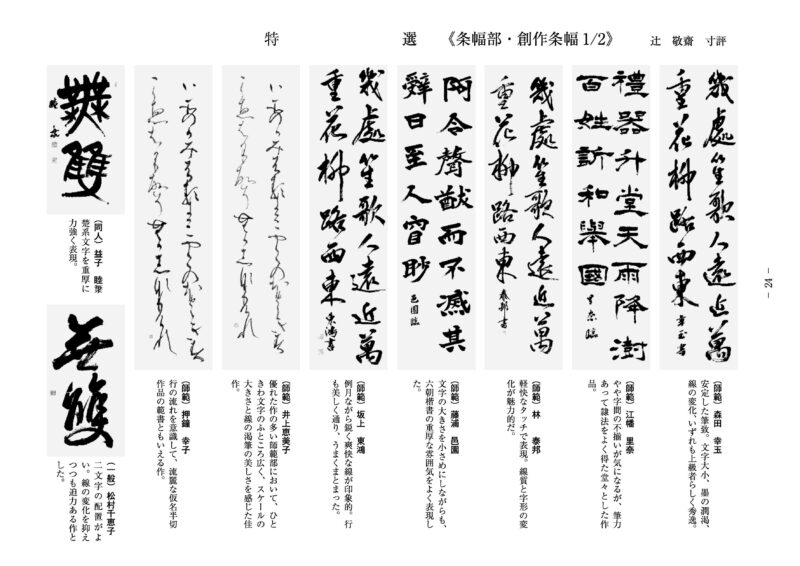 特選 《条幅部・創作条幅1/2》 辻 敬齋 寸評
幾處笙歌人遠近萬
重花柳路西東 幸玉書
(師範) 森田 幸玉
安定した筆致。文字大小、墨の潤渇、
線の変化、いずれも上級者らしく秀逸。
禮器升堂天雨降澍
百姓訢和舉國 里奈臨
(師範) 江幡 里奈
やや字間の不揃いが気になるが、筆力
あって隷法をよく得た堂々とした作
品。
幾處笙歌人遠近萬
重花柳路西東 泰邦書
(師範) 林 泰邦
軽快なタッチで表現。線質と字形の変
化が魅力的だ。
阿含聲猷而不滅其
辭日至人窅眇 邑園臨
(師範) 藤浦 邑園
文字の大きさを小さめにしながらも、
六朝楷書の重厚な雰囲気をよく表現し
た。
幾處笙歌人遠近萬
重花柳路西東 東鴻書
(師範) 坂上 東鴻
例月ながら鋭く爽快な線が印象的。行
も美しく通り、うまくまとまった。
(師範) 井上恵美子
優れた作の多い師範部において、ひと
きわ文字のふところ広く、スケールの
大きさと線の渇筆の美しさを感じた佳
作。
(師範) 押鐘 幸子
行の流れを意識して、流麗な仮名半切
作品の範書ともいえる作。
無雙
(同人) 益子
楚系文字を重厚に
力強く表現。
無雙
(一般) 松村千恵子
二文字の配置がよ
い。線の変化を抑え
つつも迫力ある作と
した。
― 24 ―